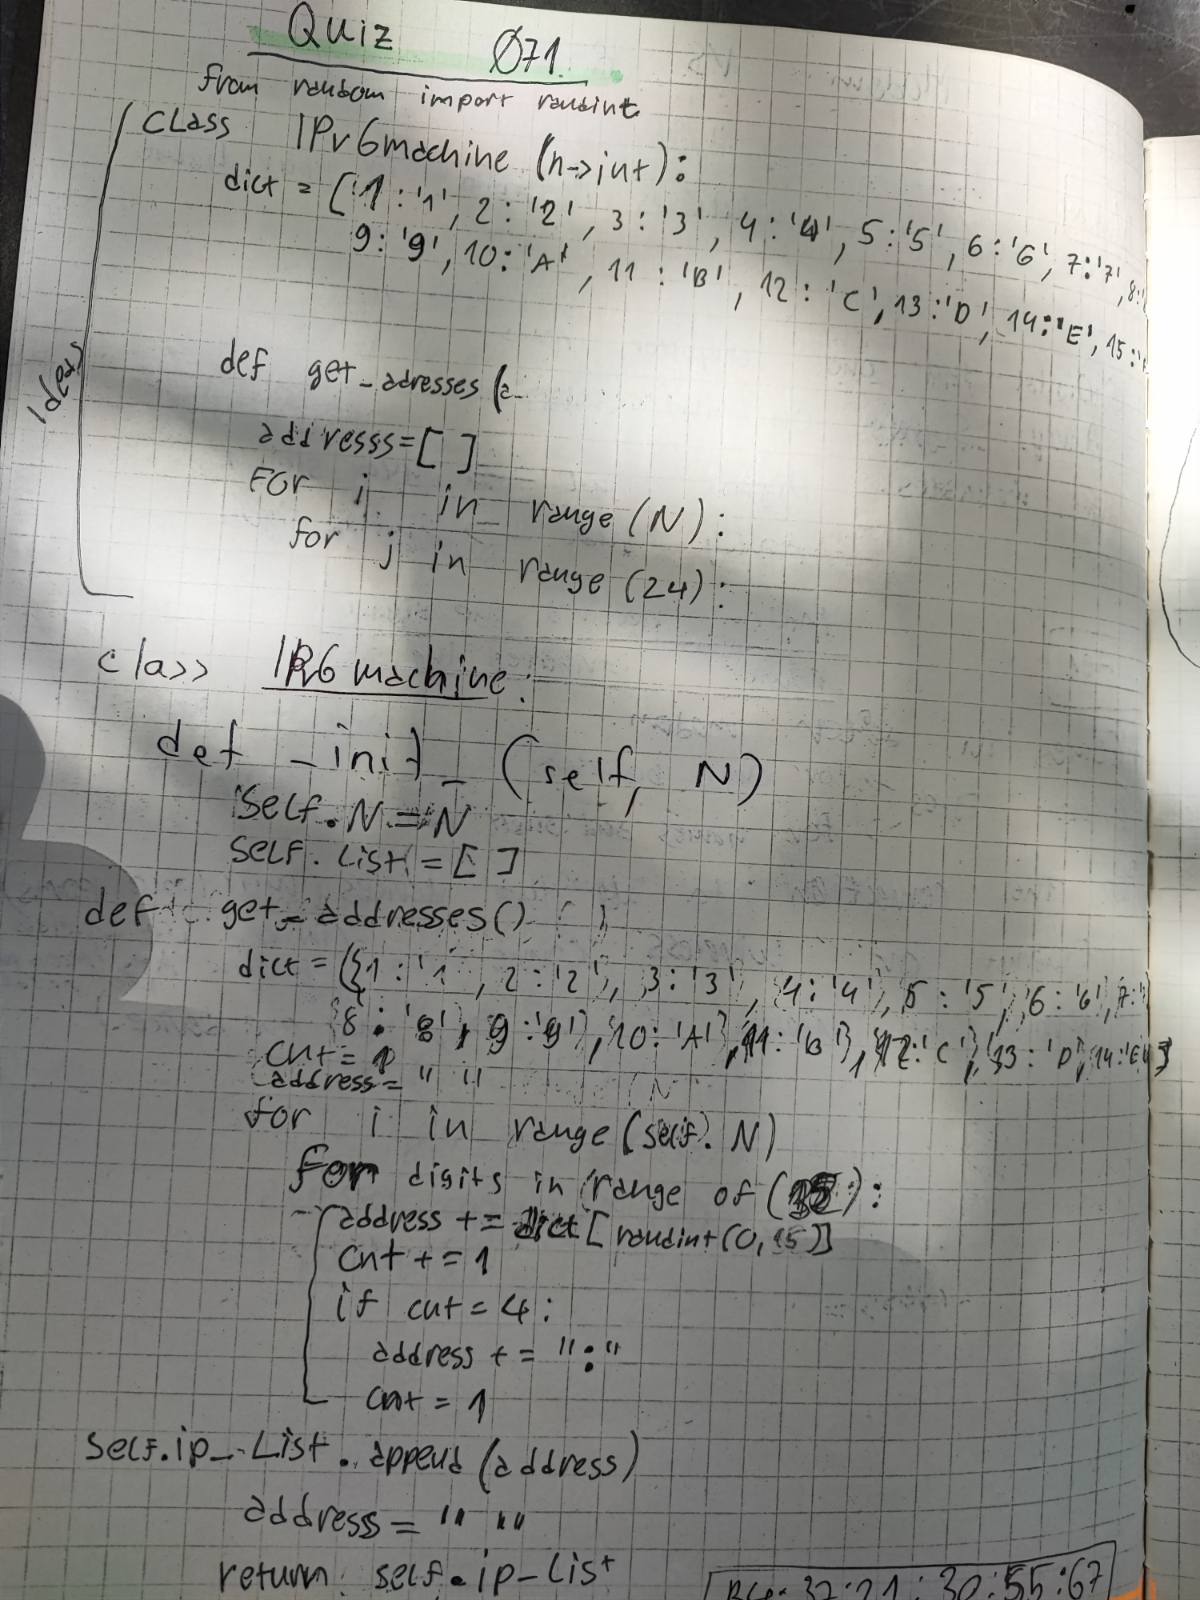 Quiz 071.
from random import randint
class IPv6machine (n->int):
dict = ['1:'1', 2:'2', 3:'3', 4:'4', 5:'5', 6:'6', 7:'7', 8:'
9:'9', 10:'A', 11:'B', 12:'C', 13:'D', 14:'E', 15:'
Ideas
def get_adresses (a_
addresss=[ ]
For i in range (N):
for j in range (24):
class IPv6 machine:
def _init_ (self, N)
Self.N = N
Self.List = [ ]
def get_addresses()
dict = ({1:'1', 2:'2', 3:'3'}, 4:'4'}, 5:'5'}, {6:'6'}, 7:'
{8:'8', 9:'9'}, 10:'A'}, 11:'B'}, 12:'C'}, {13:'D', 14:'E'}
cnt = 1
address= " "
for i in range (self.N)
for digits in range of ( ):
address += dict[randint(0,15)]
cnt += 1
if cnt = 4:
address += ":"
cnt = 1
Self.ip_List.append(address)
address = " "
return self.ip_List
:37:21:30:55:67